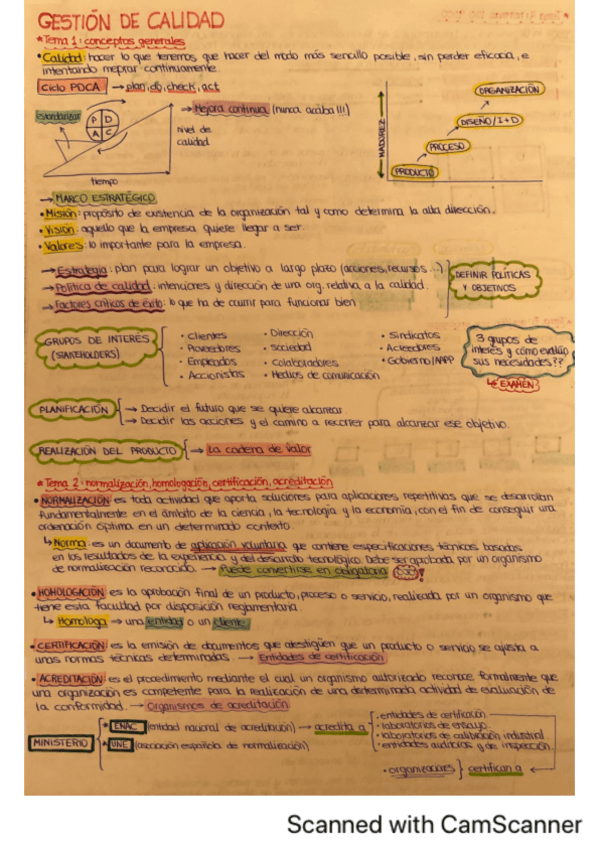 GESTIÓN DE CALIDAD
* Tema 1: conceptos generales
• Calidad: hacer lo que tenemos que hacer del modo más sencillo posible, sin perder eficacia, e
intentando mejorar continuamente.
Ciclo PDCA → plan, do, check, act
→ Mejora continua (nunca acaba!!!)
estandarizar
P D
A C
nivel de
calidad
tiempo
MADUREZ
ORGANIZACIÓN
DISEÑO/I+D
PROCESO
PRODUCTO
→ MARCO ESTRATÉGICO
• Misión: propósito de existencia de la organización tal y como determina la alta dirección.
• Visión: aquello que la empresa quiere llegar a ser.
• Valores: lo importante para la empresa.
→ Estrategia: plan para lograr un objetivo a largo plazo (acciones, recursos...)
→ Política de calidad: intenciones y dirección de una org. relativa a la calidad.
→ Factores críticos de éxito: lo que ha de ocurrir para funcionar bien
DEFINIR POLÍTICAS
Y OBJETIVOS
GRUPOS DE INTERÉS
(STAKEHOLDERS)
• Clientes
• Proveedores
• Empleados
• Accionistas
• Dirección
• Sociedad
• Colaboradores
• Medios de comunicación
• Sindicatos
• Acreedores
• Gobierno/AAPP
3 grupos de
interés y cómo evalúo
sus necesidades??
↳ EXAMEN
PLANIFICACIÓN
→ Decidir el futuro que se quiere alcanzar
→ Decidir las acciones y el camino a recorrer para alcanzar ese objetivo.
REALIZACIÓN DEL PRODUCTO → La cadena de valor
* Tema 2: normalización, homologación, certificación, acreditación
• NORMALIZACIÓN es toda actividad que aporta soluciones para aplicaciones repetitivas que se desarrollan
fundamentalmente en el ámbito de la ciencia, la tecnología y la economía, con el fin de conseguir una
ordenación óptima en un determinado contexto.
↳ Norma: es un documento de aplicación voluntaria que contiene especificaciones técnicas basadas
en los resultados de la experiencia y del desarrollo tecnológico. Debe ser aprobada por un organismo
de normalización reconocido. → Puede convertirse en obligatoria !
• HOMOLOGACIÓN es la aprobación final de un producto, proceso o servicio, realizada por un organismo que
tiene esta facultad por disposición reglamentaria.
↳ Homologa → una entidad o un cliente
• CERTIFICACIÓN es la emisión de documentos que atestigüen que un producto o servicio se ajusta a
unas normas técnicas determinadas. → Entidades de certificación
• ACREDITACIÓN es el procedimiento mediante el cual un organismo autorizado reconoce formalmente que
una organización es competente para la realización de una determinada actividad de evaluación de
la conformidad. → Organismos de acreditación
MINISTERIO
• ENAC (entidad nacional de acreditación) → acredita a
• UNE (asociación española de normalización)
• entidades de certificación
• laboratorios de ensayo
• laboratorios de calibración industrial
• entidades auditoras y de inspección
• organizaciones} certifican a
Scanned with CamScanner